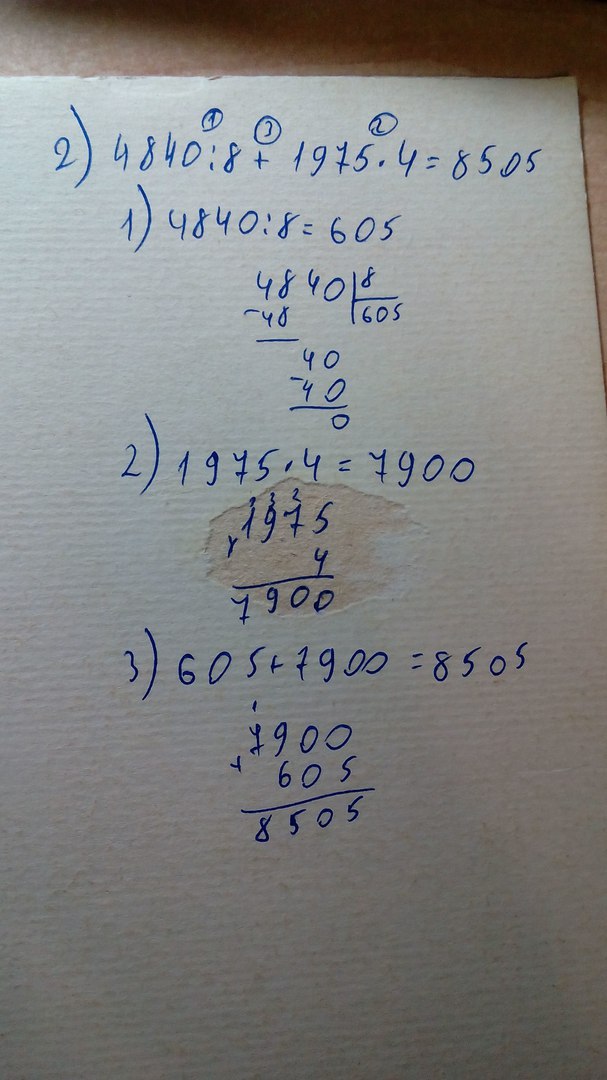 ① ③ ②
2) 4840:8 + 1975·4=8505
1) 4840:8=605
4840|8
-48 |605
40
-40
0
2) 1975·4=7900
3 3 2
1975
x 4
7900
3) 605+7900=8505
1
7900
+ 605
8505